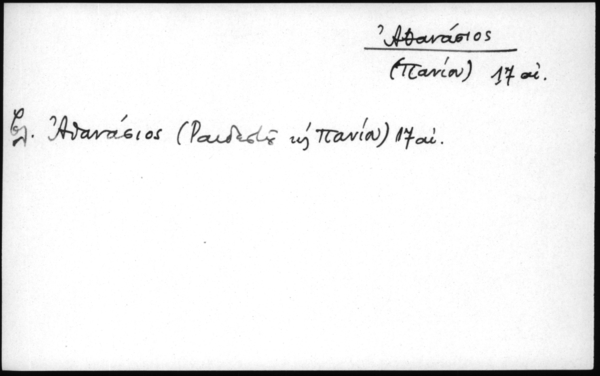 Ἀθανάσιος
(Πανίου) 17 αἰ.
Βλ. Ἀθανάσιος (Ραιδεστοῦ κ Πανίου) 17 αἰ.